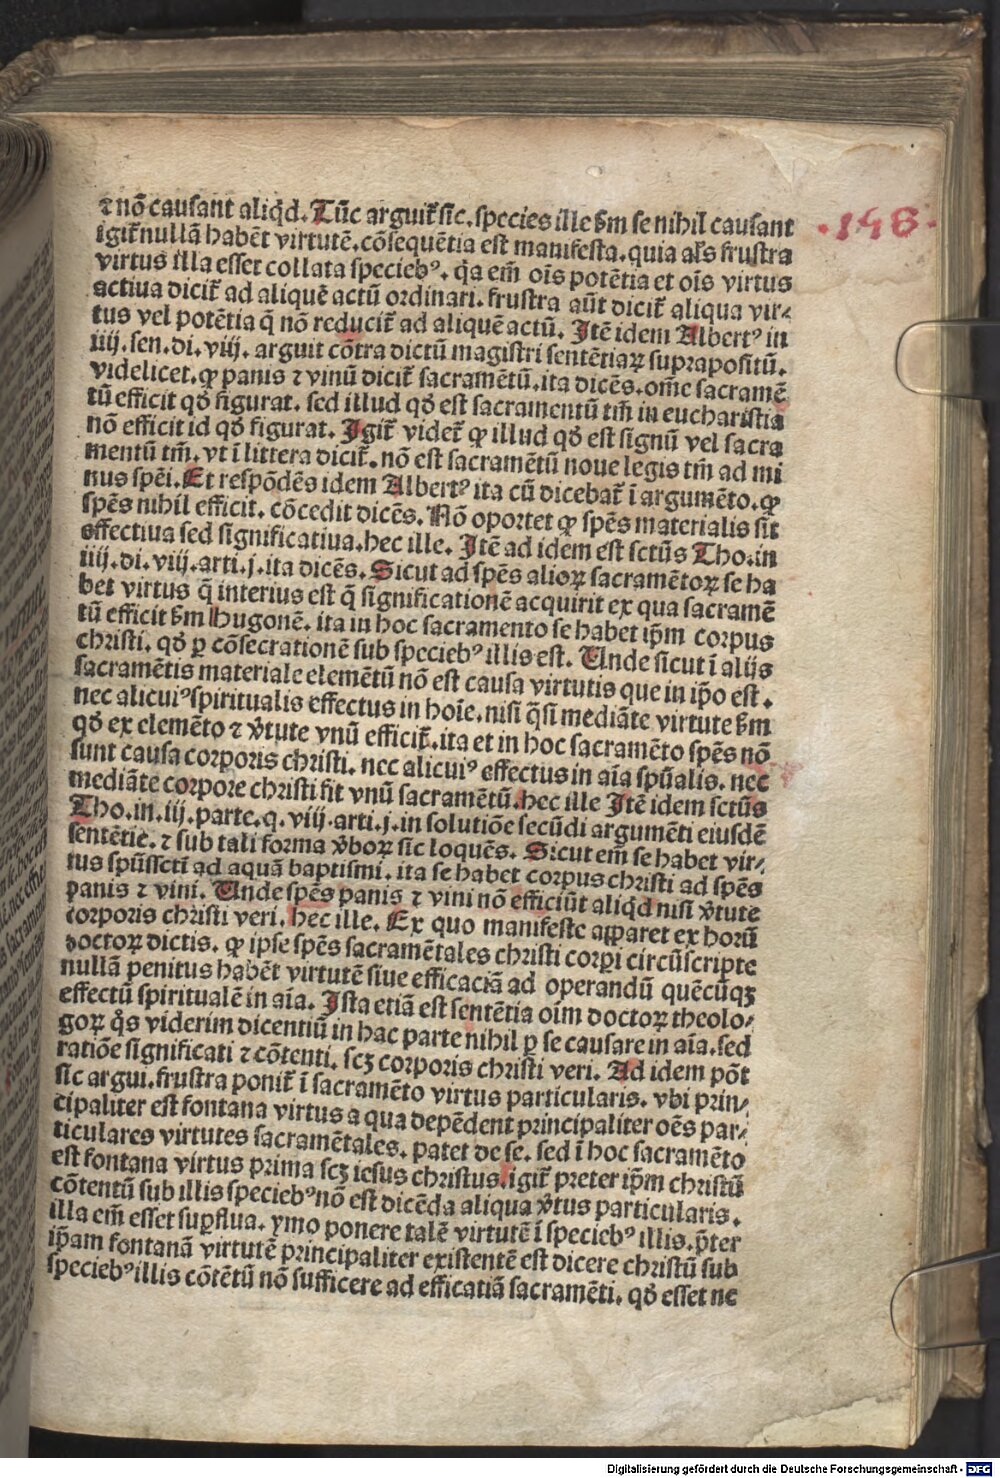 ⁊ nō causant aliqđ. Tūc arguit̃ sic. species ille ẜm se nihil causant
.198.
igit̃ nullā habēt virtutē. cōsequētia est manifesta. quia al̃s frustra
virtus illa esset collata specieb⁹. q̃a em̃ oīs potētia et oīs virtus
actiua dicit̃ ad aliquē actū ordinari. frustra aūt dicit̃ aliqua vir⸗
tus vel potētia q̄ nō reducit̃ ad aliquē actū. Itē idem Albert⁹ in
iiij. sen. di. viij. arguit cōtra dictū magistri sentētiaꝝ suprapositū.
videlicet. ꝙ panis ⁊ vinū dicit̃ sacramētū. ita dicēs. om̄e sacramē
tū efficit qđ figurat. sed illud qđ est sacramentū tm̄ in eucharistia
nō efficit id qđ figurat. Igit̃ videt̃ ꝙ illud qđ est signū vel sacra
mentū tm̄. vt ī littera dicit̃. nō est sacramētū noue legis tm̄ ad mi
nus spēi. Et respōdēs idem Albert⁹ ita cū dicebat̃ ī argumēto. ꝙ
spēs nihil efficit. cōcedit dicēs. Nō oportet ꝙ spēs materialis sit
effectiua sed significatiua. hec ille. Itē ad idem est sctūs Tho. in
iiij. di. viij. arti. j. ita dicēs. Sicut ad spēs alioꝝ sacramētoꝝ se ha
bet virtus q̄ interius est q̄ significationē acquirit ex qua sacramē
tū efficit ẜm Hugonē. ita in hoc sacramento se habet ip̄m corpus
christi. qđ ꝑ cōsecrationē sub specieb⁹ illis est. Unde sicut ī alijs
sacramētis materiale elemētū nō est causa virtutis que in ip̄o est.
nec alicui⁹ spiritualis effectus in hoīe. nisi q̄si mediāte virtute ẜm
qđ ex elemēto ⁊ v̓tute vnū efficit̃. ita et in hoc sacramēto spēs nō
sunt causa corporis christi. nec alicui⁹ effectus in aīa spūalis. nec
mediāte corpore christi fit vnū sacramētū. hec ille Itē idem sctūs
Tho. in. iij. parte. q. viij. arti. j. in solutiōe secūdi argumēti eiusdē
sentētie. ⁊ sub tali forma v̓boꝝ sic loquēs. Sicut em̃ se habet vir⸗
tus spūssctī ad aquā baptismi. ita se habet corpus christi ad spēs
panis ⁊ vini. Unde spēs panis ⁊ vini nō efficiūt aliqđ nisi v̓tute
corporis christi veri. hec ille. Ex quo manifeste apparet ex horū
doctoꝝ dictis. ꝙ ipse spēs sacramētales christi corpi circūscripte
nullā penitus habēt virtutē siue efficaciā ad operandū quēcūqꝫ
effectū spiritualē in aīa. Ista etiā est sentētia oīm doctoꝝ theolo⸗
goꝝ q̊s viderim dicentiū in hac parte nihil ꝑ se causare in aīa. sed
ratiōe significati ⁊ cōtenti. scꝫ corporis christi veri. Ad idem pōt
sic argui. frustra ponit̃ ī sacramēto virtus particularis. vbi prin⸗
cipaliter est fontana virtus a qua depēdent principaliter oēs par⸗
ticulares virtutes sacramētales. patet de se. sed ī hoc sacramēto
est fontana virtus prima scꝫ iesus christus. igit̃ preter ip̄m christū
cōtentū sub illis specieb⁹ nō est dicēda aliqua v̓tus particularis.
illa em̃ esset suꝑflua. ymo ponere talē virtutē ī specieb⁹ illis. p̄ter
ip̄am fontanā virtutē principaliter existentē est dicere christū sub
specieb⁹ illis cōtētū nō sufficere ad efficatiā sacramēti. qđ esset ne
Digitalisierung gefördert durch die Deutsche Forschungsgemeinschaft - DFG